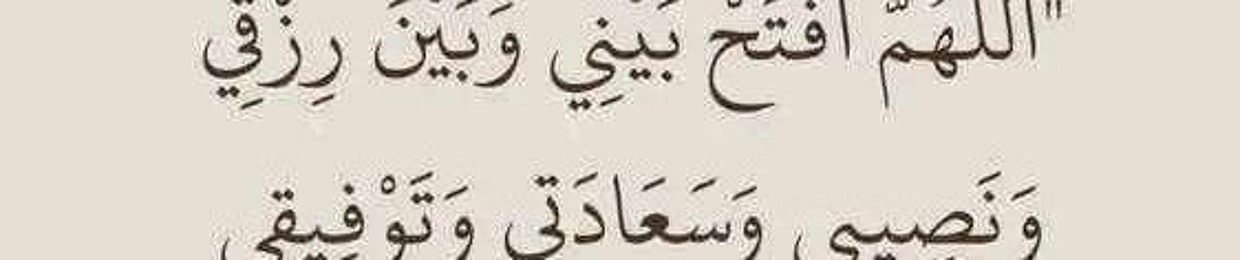 "اللّهُمَّ افْتَحْ بَيْنِي وَبَيْنَ رِزْقِي
وَنَصِيبِي وَسَعَادَتِي وَتَوْفِيقِي